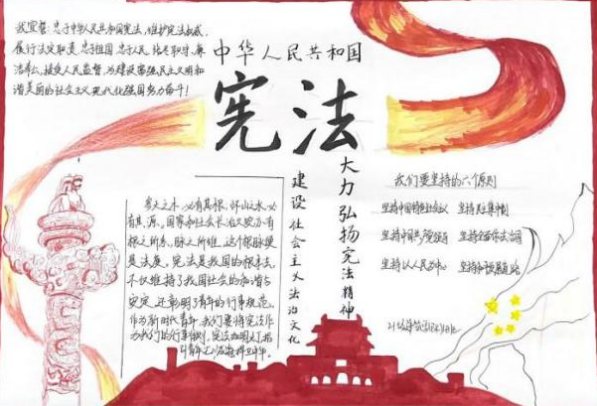 我宣誓:忠于中华人民共和国宪法,维护宪法权威,
履行法定职责,忠于祖国、忠于人民,恪尽职守、廉
洁奉公,接受人民监督,为建设富强民主文明和
谐美丽的社会主义现代化强国努力奋斗!
中华人民共和国
宪法
大力弘扬宪法精神
建设社会主义法治文化
参天之木,必有其根,怀山之水,必
有其源。国家和社会长治久安亦有
根之所系、脉之所维。这个根脉便
是法度。宪法是我国的根本法
不仅维持了我国社会的和谐与
安定,还彰明了青年的行事规范。
作为新时代青年,我们要将宪法作
为我们的行事准则,
我们要坚持的六个原则
坚持中国特色社会主义 坚持民主集中制
坚持中国共产党领导 坚持全面依法治国
坚持以人民为中心